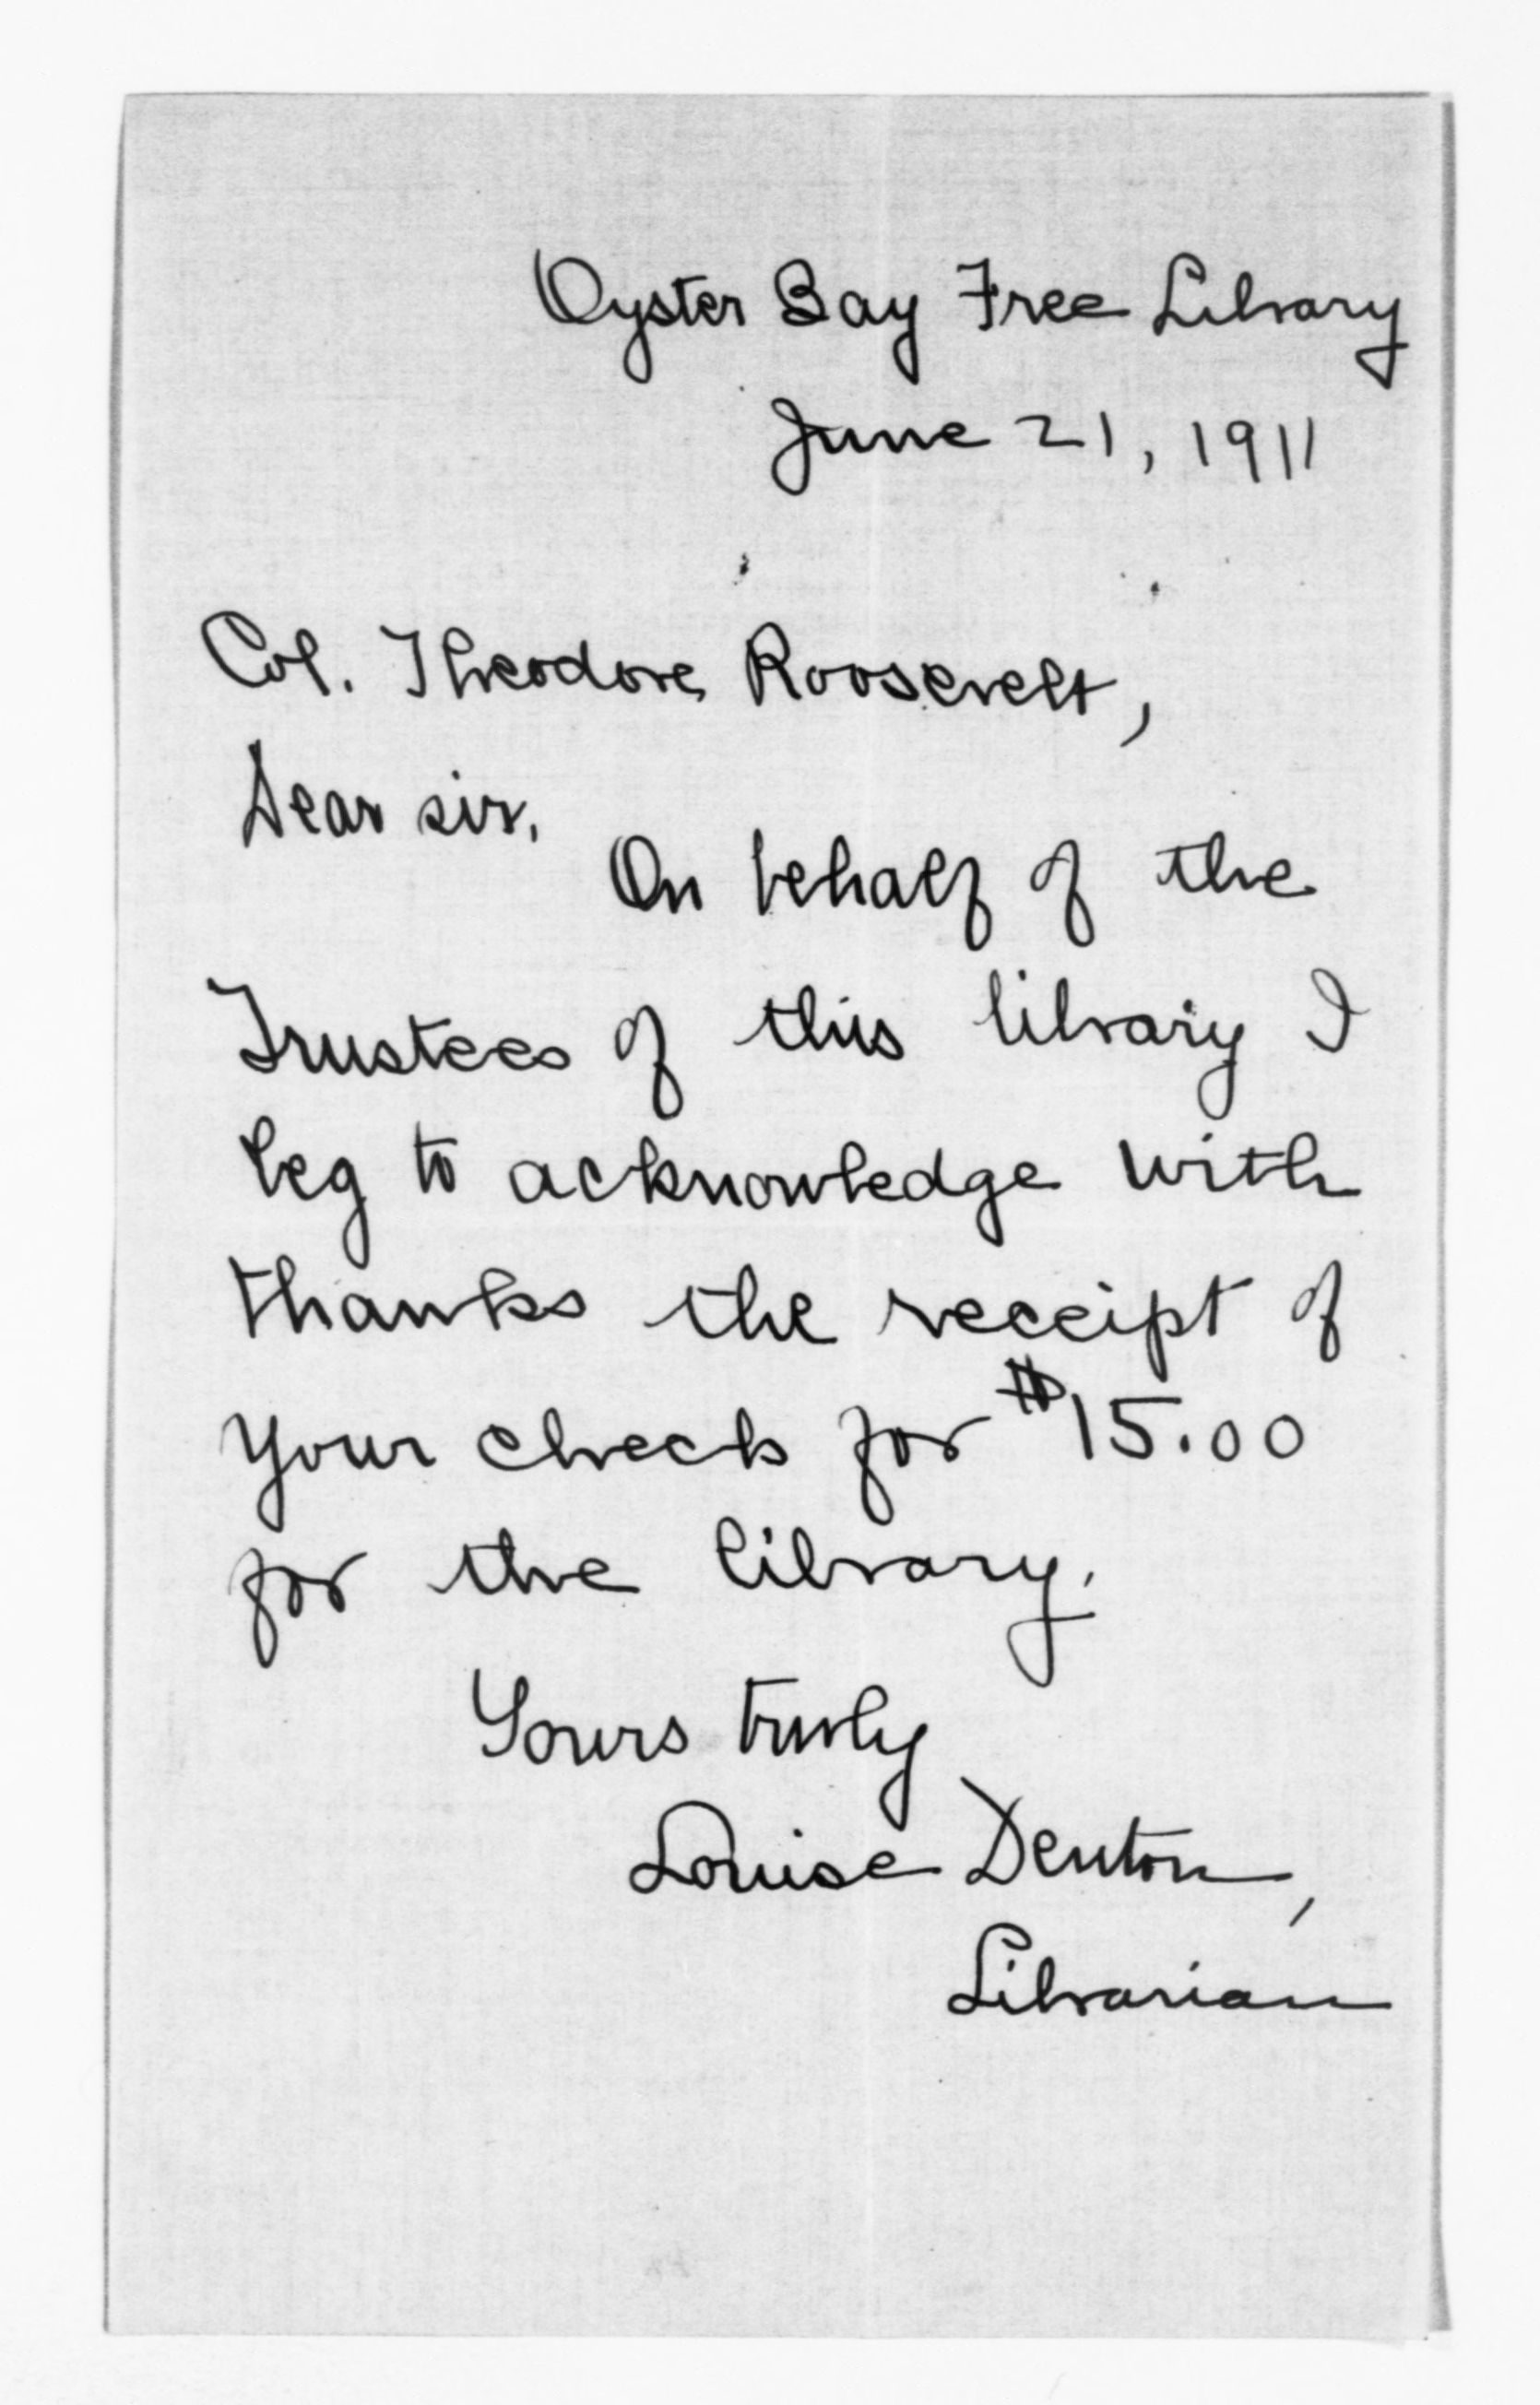 Oyster Bay Free Library
June 21, 1911
Col. Theodore Roosevelt,
Dear sir,
On behalf of the
Trustees of this library I
beg to acknowledge with
thanks the receipt of
your check for $15.00
for the library.
Yours truly
Louise Denton,
Librarian